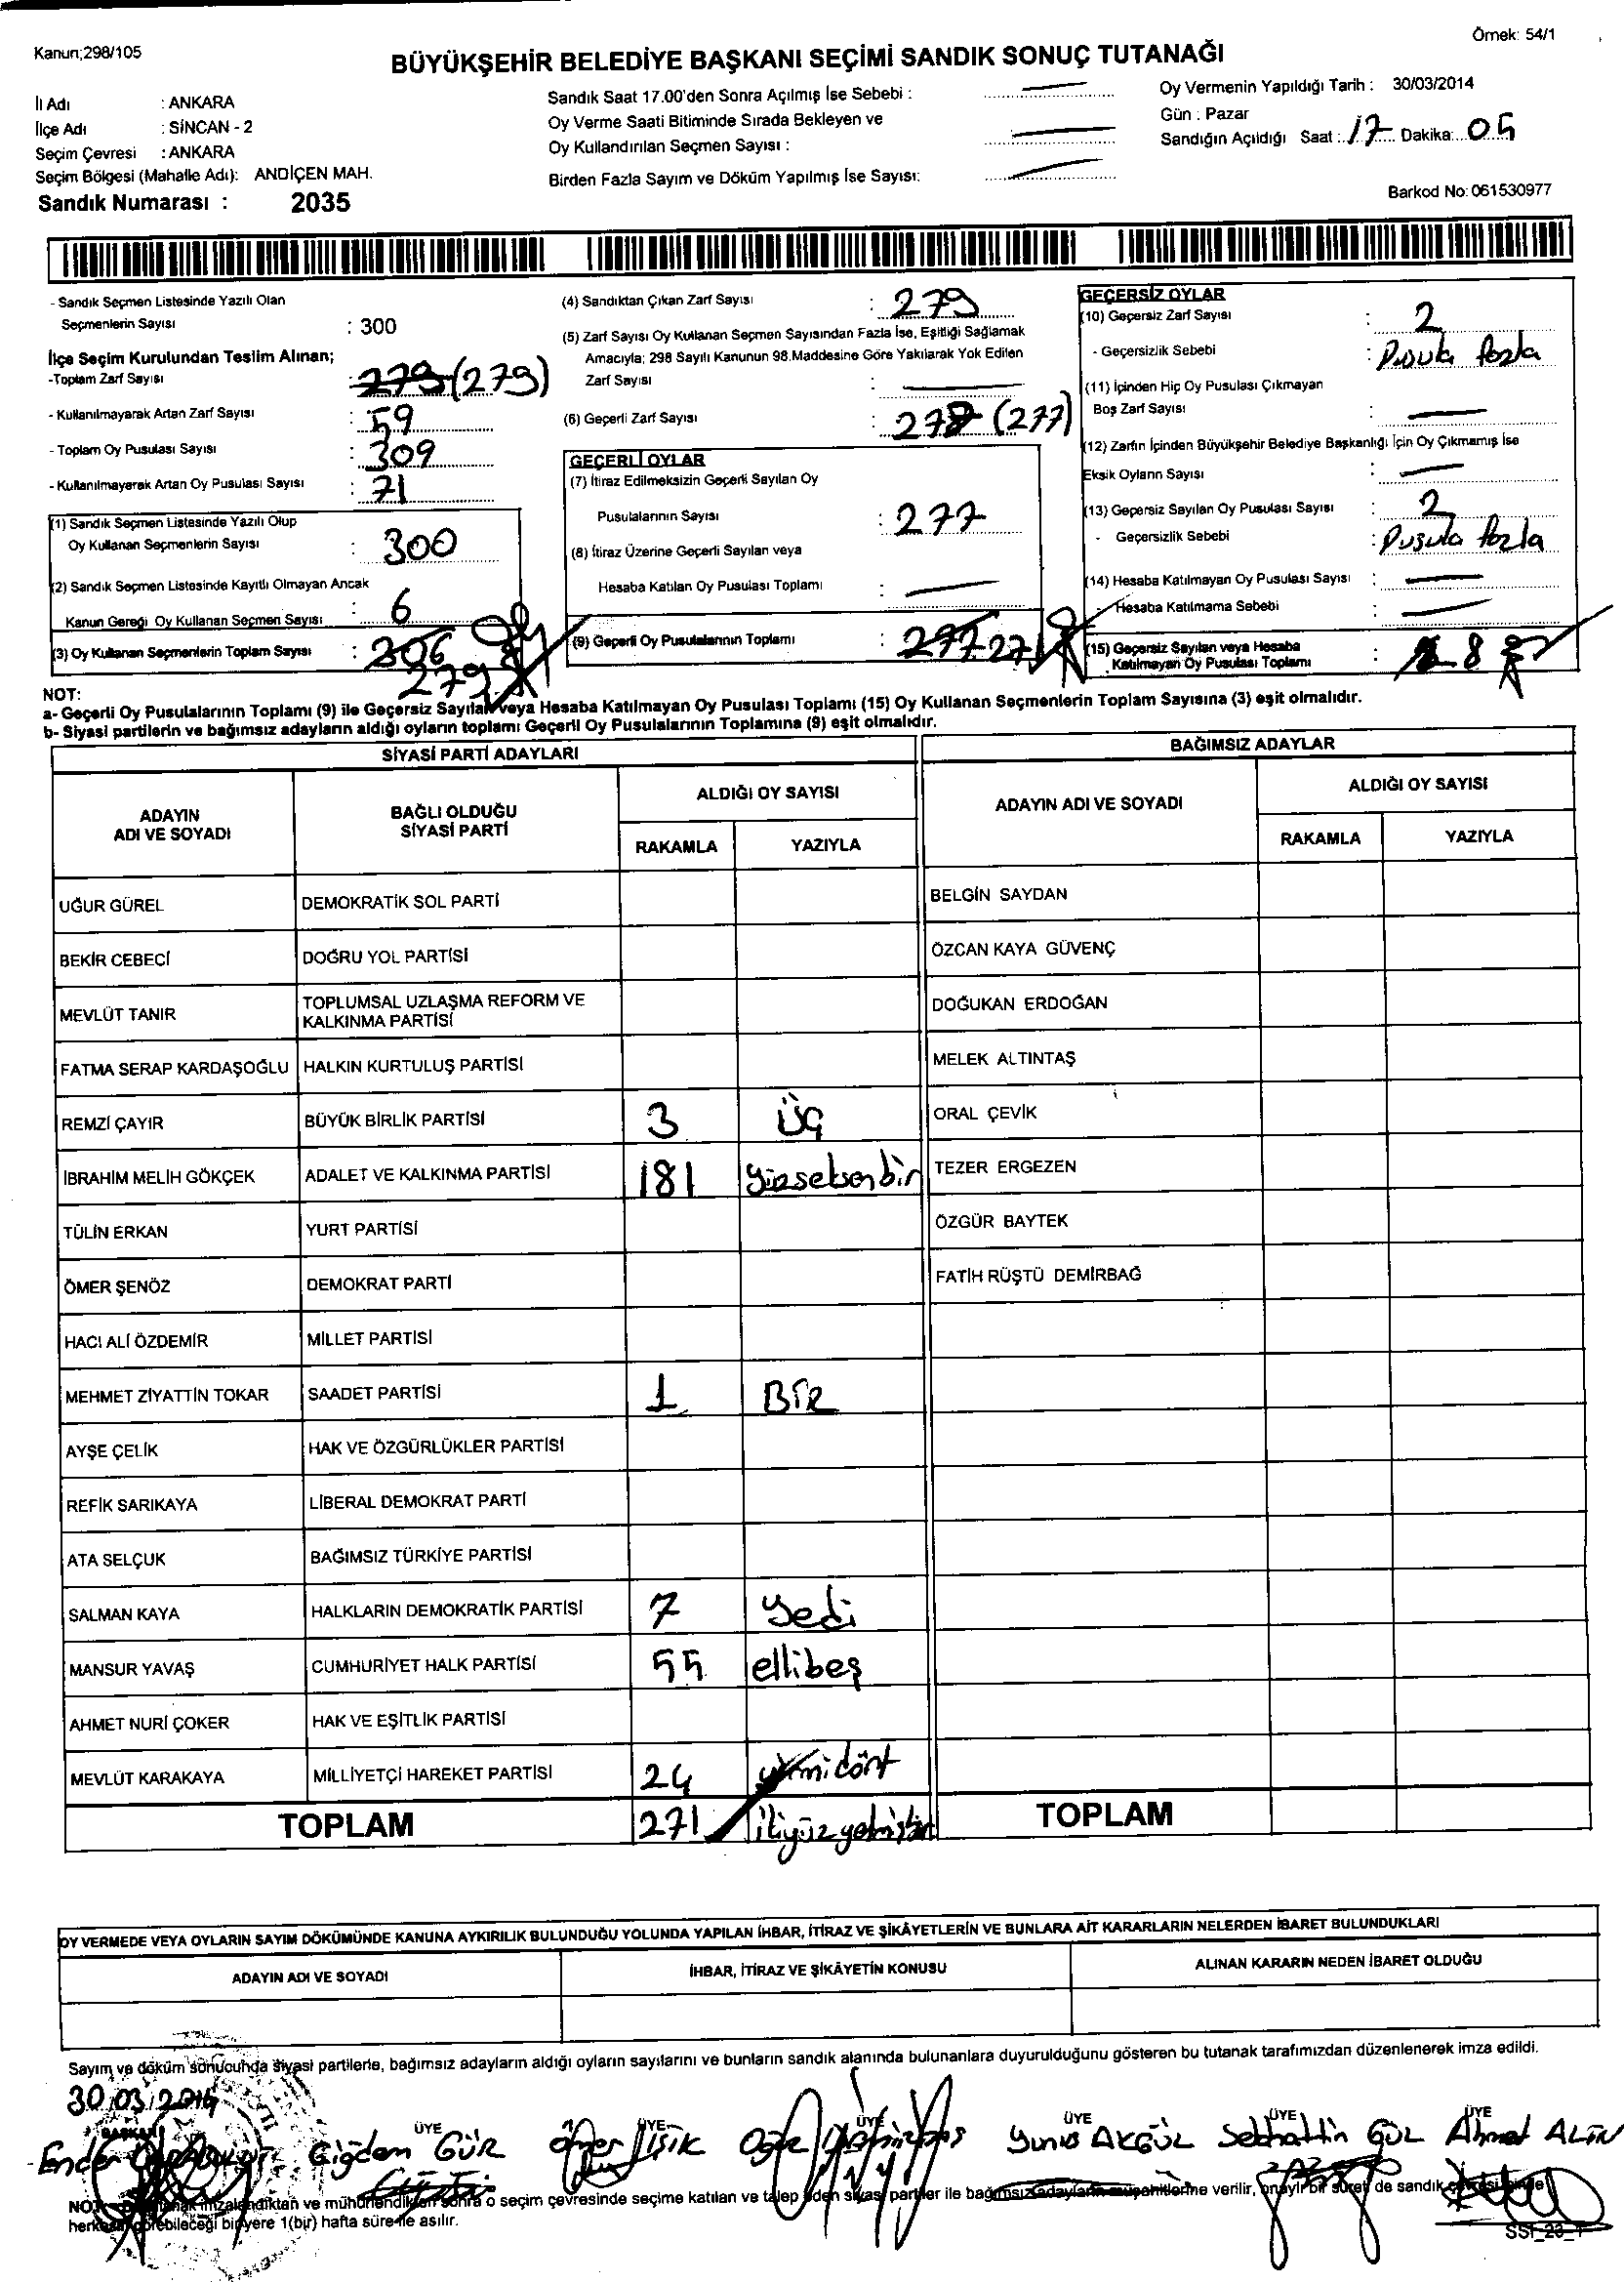 Kanun;298/105
Örnek: 54/1
BÜYÜKŞEHİR BELEDİYE BAŞKANI SEÇİMİ SANDIK SONUÇ TUTANAĞI
İl Adı : ANKARA
İlçe Adı : SİNCAN - 2
Seçim Çevresi : ANKARA
Seçim Bölgesi (Mahalle Adı): ANDİÇEN MAH.
Sandık Numarası : 2035
Sandık Saat 17.00'den Sonra Açılmış İse Sebebi :
Oy Verme Saati Bitiminde Sırada Bekleyen ve
Oy Kullandırılan Seçmen Sayısı :
Birden Fazla Sayım ve Döküm Yapılmış İse Sayısı:
Oy Vermenin Yapıldığı Tarih : 30/03/2014
Gün : Pazar
Sandığın Açıldığı Saat : 17 Dakika: 05
Barkod No: 061530977
- Sandık Seçmen Listesinde Yazılı Olan
Seçmenlerin Sayısı : 300
İlçe Seçim Kurulundan Teslim Alınan;
-Toplam Zarf Sayısı : 279 (279)
- Kullanılmayarak Artan Zarf Sayısı : 59
- Toplam Oy Pusulası Sayısı : 309
- Kullanılmayarak Artan Oy Pusulası Sayısı : 71
(1) Sandık Seçmen Listesinde Yazılı Olup
Oy Kullanan Seçmenlerin Sayısı : 300
(2) Sandık Seçmen Listesinde Kayıtlı Olmayan Ancak
Kanun Gereği Oy Kullanan Seçmen Sayısı : 6
(3) Oy Kullanan Seçmenlerin Toplam Sayısı : 306
279
(4) Sandıktan Çıkan Zarf Sayısı : 279
(5) Zarf Sayısı Oy Kullanan Seçmen Sayısından Fazla İse, Eşitliği Sağlamak
Amacıyla; 298 Sayılı Kanunun 98.Maddesine Göre Yakılarak Yok Edilen
Zarf Sayısı :
(6) Geçerli Zarf Sayısı : 278 (277)
GEÇERLİ OYLAR
(7) İtiraz Edilmeksizin Geçerli Sayılan Oy
Pusulalarının Sayısı : 277
(8) İtiraz Üzerine Geçerli Sayılan veya
Hesaba Katılan Oy Pusulası Toplamı :
(9) Geçerli Oy Pusulalarının Toplamı : 277 271
GEÇERSİZ OYLAR
(10) Geçersiz Zarf Sayısı : 2
- Geçersizlik Sebebi : Pusula fazla
(11) İçinden Hiç Oy Pusulası Çıkmayan
Boş Zarf Sayısı :
(12) Zarfın İçinden Büyükşehir Belediye Başkanlığı İçin Oy Çıkmamış İse
Eksik Oyların Sayısı :
(13) Geçersiz Sayılan Oy Pusulası Sayısı : 2
- Geçersizlik Sebebi : Pusula fazla
(14) Hesaba Katılmayan Oy Pusulası Sayısı :
- Hesaba Katılmama Sebebi :
(15) Geçersiz Sayılan veya Hesaba
Katılmayan Oy Pusulası Toplamı : 8
NOT:
a- Geçerli Oy Pusulalarının Toplamı (9) ile Geçersiz Sayılan veya Hesaba Katılmayan Oy Pusulası Toplamı (15) Oy Kullanan Seçmenlerin Toplam Sayısına (3) eşit olmalıdır.
b- Siyasi partilerin ve bağımsız adayların aldığı oyların toplamı Geçerli Oy Pusulalarının Toplamına (9) eşit olmalıdır.
SİYASİ PARTİ ADAYLARI
BAĞIMSIZ ADAYLAR
ADAYIN ADI VE SOYADI
BAĞLI OLDUĞU SİYASİ PARTİ
ALDIĞI OY SAYISI
RAKAMLA YAZIYLA
ADAYIN ADI VE SOYADI
ALDIĞI OY SAYISI
RAKAMLA YAZIYLA
UĞUR GÜREL DEMOKRATİK SOL PARTİ BELGİN SAYDAN
BEKİR CEBECİ DOĞRU YOL PARTİSİ ÖZCAN KAYA GÜVENÇ
MEVLÜT TANIR TOPLUMSAL UZLAŞMA REFORM VE KALKINMA PARTİSİ DOĞUKAN ERDOĞAN
FATMA SERAP KARDAŞOĞLU HALKIN KURTULUŞ PARTİSİ MELEK ALTINTAŞ
REMZİ ÇAYIR BÜYÜK BİRLİK PARTİSİ 3 Üç ORAL ÇEVİK
İBRAHİM MELİH GÖKÇEK ADALET VE KALKINMA PARTİSİ 181 yüzseksenbir TEZER ERGEZEN
TÜLİN ERKAN YURT PARTİSİ ÖZGÜR BAYTEK
ÖMER ŞENÖZ DEMOKRAT PARTİ FATİH RÜŞTÜ DEMİRBAĞ
HACI ALİ ÖZDEMİR MİLLET PARTİSİ
MEHMET ZİYATTİN TOKAR SAADET PARTİSİ 1 BİR
AYŞE ÇELİK HAK VE ÖZGÜRLÜKLER PARTİSİ
REFİK SARIKAYA LİBERAL DEMOKRAT PARTİ
ATA SELÇUK BAĞIMSIZ TÜRKİYE PARTİSİ
SALMAN KAYA HALKLARIN DEMOKRATİK PARTİSİ 7 yedi
MANSUR YAVAŞ CUMHURİYET HALK PARTİSİ 55 ellibeş
AHMET NURİ ÇOKER HAK VE EŞİTLİK PARTİSİ
MEVLÜT KARAKAYA MİLLİYETÇİ HAREKET PARTİSİ 24 yirmidört
TOPLAM 271 ikiyüzyetmişbir TOPLAM
OY VERMEDE VEYA OYLARIN SAYIM DÖKÜMÜNDE KANUNA AYKIRILIK BULUNDUĞU YOLUNDA YAPILAN İHBAR, İTİRAZ VE ŞİKÂYETLERİN VE BUNLARA AİT KARARLARIN NELERDEN İBARET BULUNDUKLARI
ADAYIN ADI VE SOYADI İHBAR, İTİRAZ VE ŞİKÂYETİN KONUSU ALINAN KARARIN NEDEN İBARET OLDUĞU
Sayım ve döküm sonucunda siyasi partilerle, bağımsız adayların aldığı oyların sayılarını ve bunların sandık alanında bulunanlara duyurulduğunu gösteren bu tutanak tarafımızdan düzenlenerek imza edildi.
30/03/2014
BAŞKAN ÜYE ÜYE ÜYE ÜYE ÜYE ÜYE
Ender Çiğdem GÜR Ömer IŞIK Yunus AKGÜL Sebahattin GÜL Ahmet ALTIN
NOT: imzalandıktan ve mühürlendikten sonra o seçim çevresinde seçime katılan ve talep eden siyasi partiler ile bağımsız adayların müşahitlerine verilir, onaylı bir sureti de sandık çevresi içinde
herkesin görebileceği bir yere 1(bir) hafta süre ile asılır.
SSI_23_T